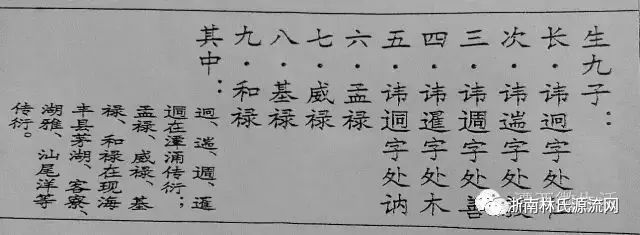 生九子：
长·讳迥字处
次·讳遄字处
三·讳週字处善
四·讳暹字处木
五·讳迴字处讷
六·孟禄
七·威禄
八·基禄
九·和禄
其中：
迥、遄、週、暹
迴在潭涌传衍；
孟禄、威禄、基
禄、和禄在现海
丰县茅湖、客寮、
湖雅、汕尾洋等
传衍。
浙南林氏源流网